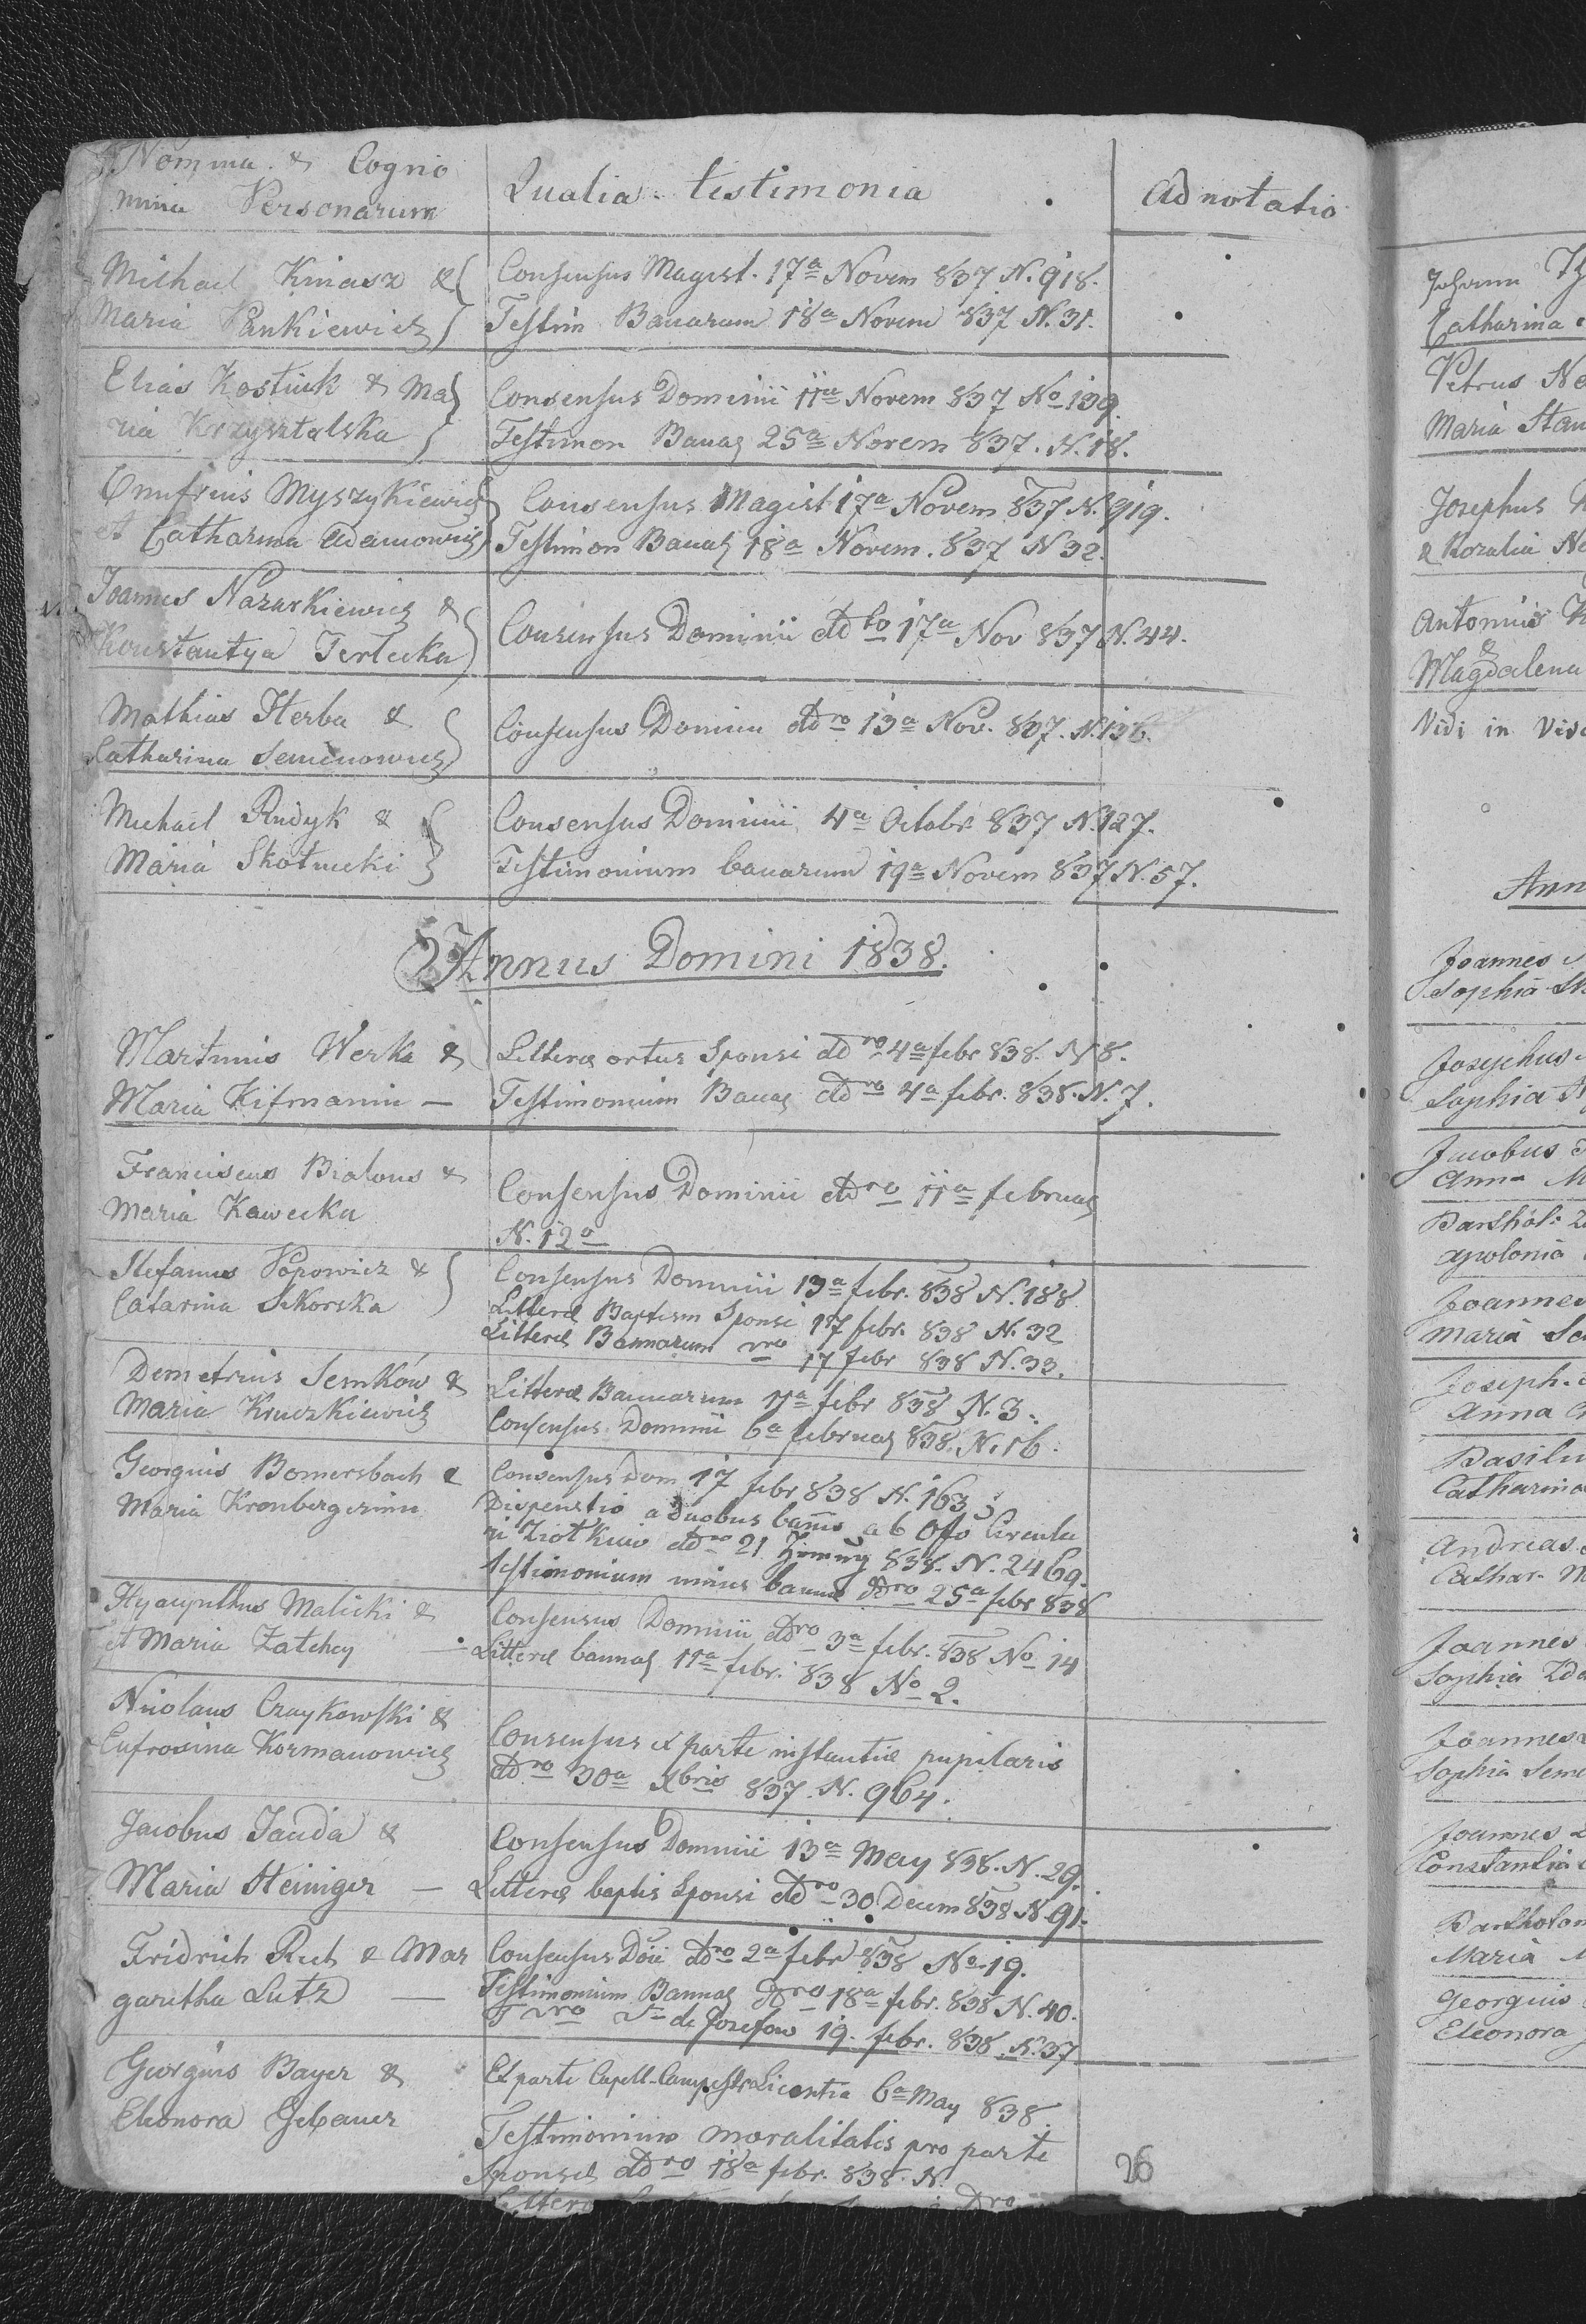 Nomina & Cogno
mina Personarum
Qualia testimonia
Adnotatio
Michael Kniasz &
Maria Pankiewicz
Consensus Magist. 17a Novem 837 N. 918.
Testim Banarum 18a Novem 837 N. 31.
Elias Kostiuk & Ma
ria Krzysztalska
Consensus Dominii 11a Novem 837 No 139.
Testimon Banar 25a Novem 837. N. 18.
Onufrius Myszykiewicz
et Catharina Adamowicz
Consensus Magist 17a Novem 837 N. 919.
Testimon Banar 18a Novem. 837 N 32.
Joannes Nazarkiewicz &
Konstantya Terlecka
Consensus Dominii dd to 17a Nov 837 N. 44.
Mathias Herba &
Catharina Semenowicz
Consensus Dominii ddro 13a Nov. 837. N. 136.
Michael Rudyk &
Maria Skotnicki
Consensus Dominii 4a Octobr 837 N. 127.
Testimonium banarum 19a Novem 837 N. 57.
Annus Domini 1838.
Martinus Werka &
Maria Kifmanin —
Litterae ortus Sponsi ddro 4a febr 838. N 8.
Testimonium Banar ddro 4a febr. 838. N. 7.
Franciscus Bialous &
Maria Kawecka
Consensus Dominii ddro 11a februar
N. 12o
Stefanus Popowicz &
Catarina Sikorska
Consensus Dominii 13a febr. 838 N. 188
Litterae Baptism Sponsi 17 febr. 838 N. 32
Litterae Bannarum vro 17 febr 838 N. 33.
Demetrius Semków &
Maria Kruczkiewicz
Litterae Bannarum 11a febr 838 N. 3.
Consensus Dominii 6a februar 838. N. 16.
Georgius Bomersbach &
Maria Kronbergerinn
Consensus Dom 17 febr 838 N. 163
Dispenstio a duobus bannis ab Offo Circula
ri Ziotkiew ddro 21 838. N. 2469.
testimonium unius banni ddro 25a febr 838
Hyacynthus Malicki &
et Maria Zatchey
Consensus Dominii ddro 3a febr. 838 No 14
Litterae bannar 11a febr. 838 No 2.
Nicolaus Czaykowski &
Eufrosina Kormanowicz
Consensus ex parte instantiae pupilaris
ddro 30a Xbris 837. N. 964.
Jacobus Janda &
Maria Steiniger —
Consensus Dominii 13a May 838. N. 29.
Litterae baptis Sponsi ddro 30 Decem 838 N 91.
Fridrich Ruch & Mar
garetha Lutz —
Consensus Doii ddro 2a febr 838 No 19.
Testimonium Bannar ddro 18a febr. 838 N. 40.
T vro de Josefow 19. febr. 838. N. 37
Georgius Bayer &
Eleonora Gebauer
Ex parte Capell. Campestr Licentia 6a May 838.
Testimonium moralitatis pro parte
Sponsae ddro 18a febr. 838. N.
26
Johann
Catharina
Petrus
Maria
Josephus
& Rozalia
Antonius
&
Magdalena
Vidi in
Ann
Joannes
Sophia
Josephus
Sophia
Jacobus
Anna
Barthol:
Apolonia
Joannes
Maria
Joseph
Anna
Basiliu
Catharina
Andreas
Cathar.
Joannes
Sophia
Joannes
Sophia
Joannes
Constantia
Bartholom
Maria
Georgius
Eleonora